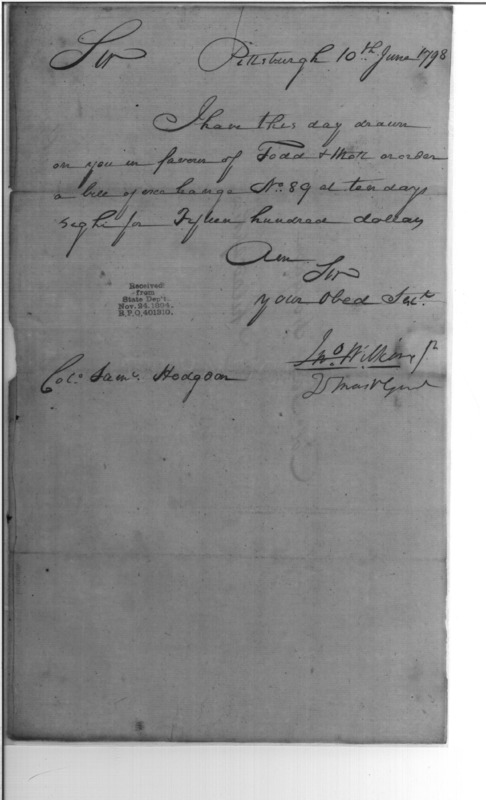 Sir Pittsburgh 10th June 1798
I have this day drawn
on you in favour of Todd & Mott or order
a bill of exchange No. 89 at ten days
seght for Fifteen hundred dollars
Am
Sir
your Obed Sert.
Received
from
State Dep't.
Nov. 24, 1904,
R.P.O, 401319.
Jno. Wilkins Jr
Colo. Saml. Hodgdon
Qr Mastr Genl